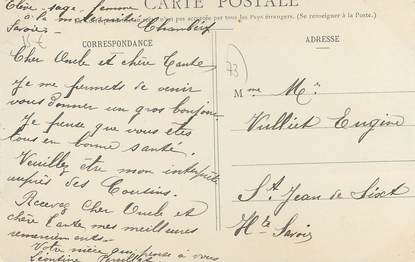 Élève-sage-femme
CARTE POSTALE
à la maternité Chambéry
pas acceptée par tous les Pays étrangers. (Se renseigner à la Poste.)
Savoie
CORRESPONDANCE
Cher Oncle et chère Tante
Je me permets de venir
vous donner un gros bonjour.
Je pense que vous êtes
tous en bonne santé.
Veuillez être mon interprète
auprès des Cousins.
Recevez Cher Oncle et
chère Tante mes meilleures
Votre nièce qui pense à vous
Léontine
73
ADRESSE
Mme Mr
Vulliet Eugène
St Jean de Sixt
Hte Savoie